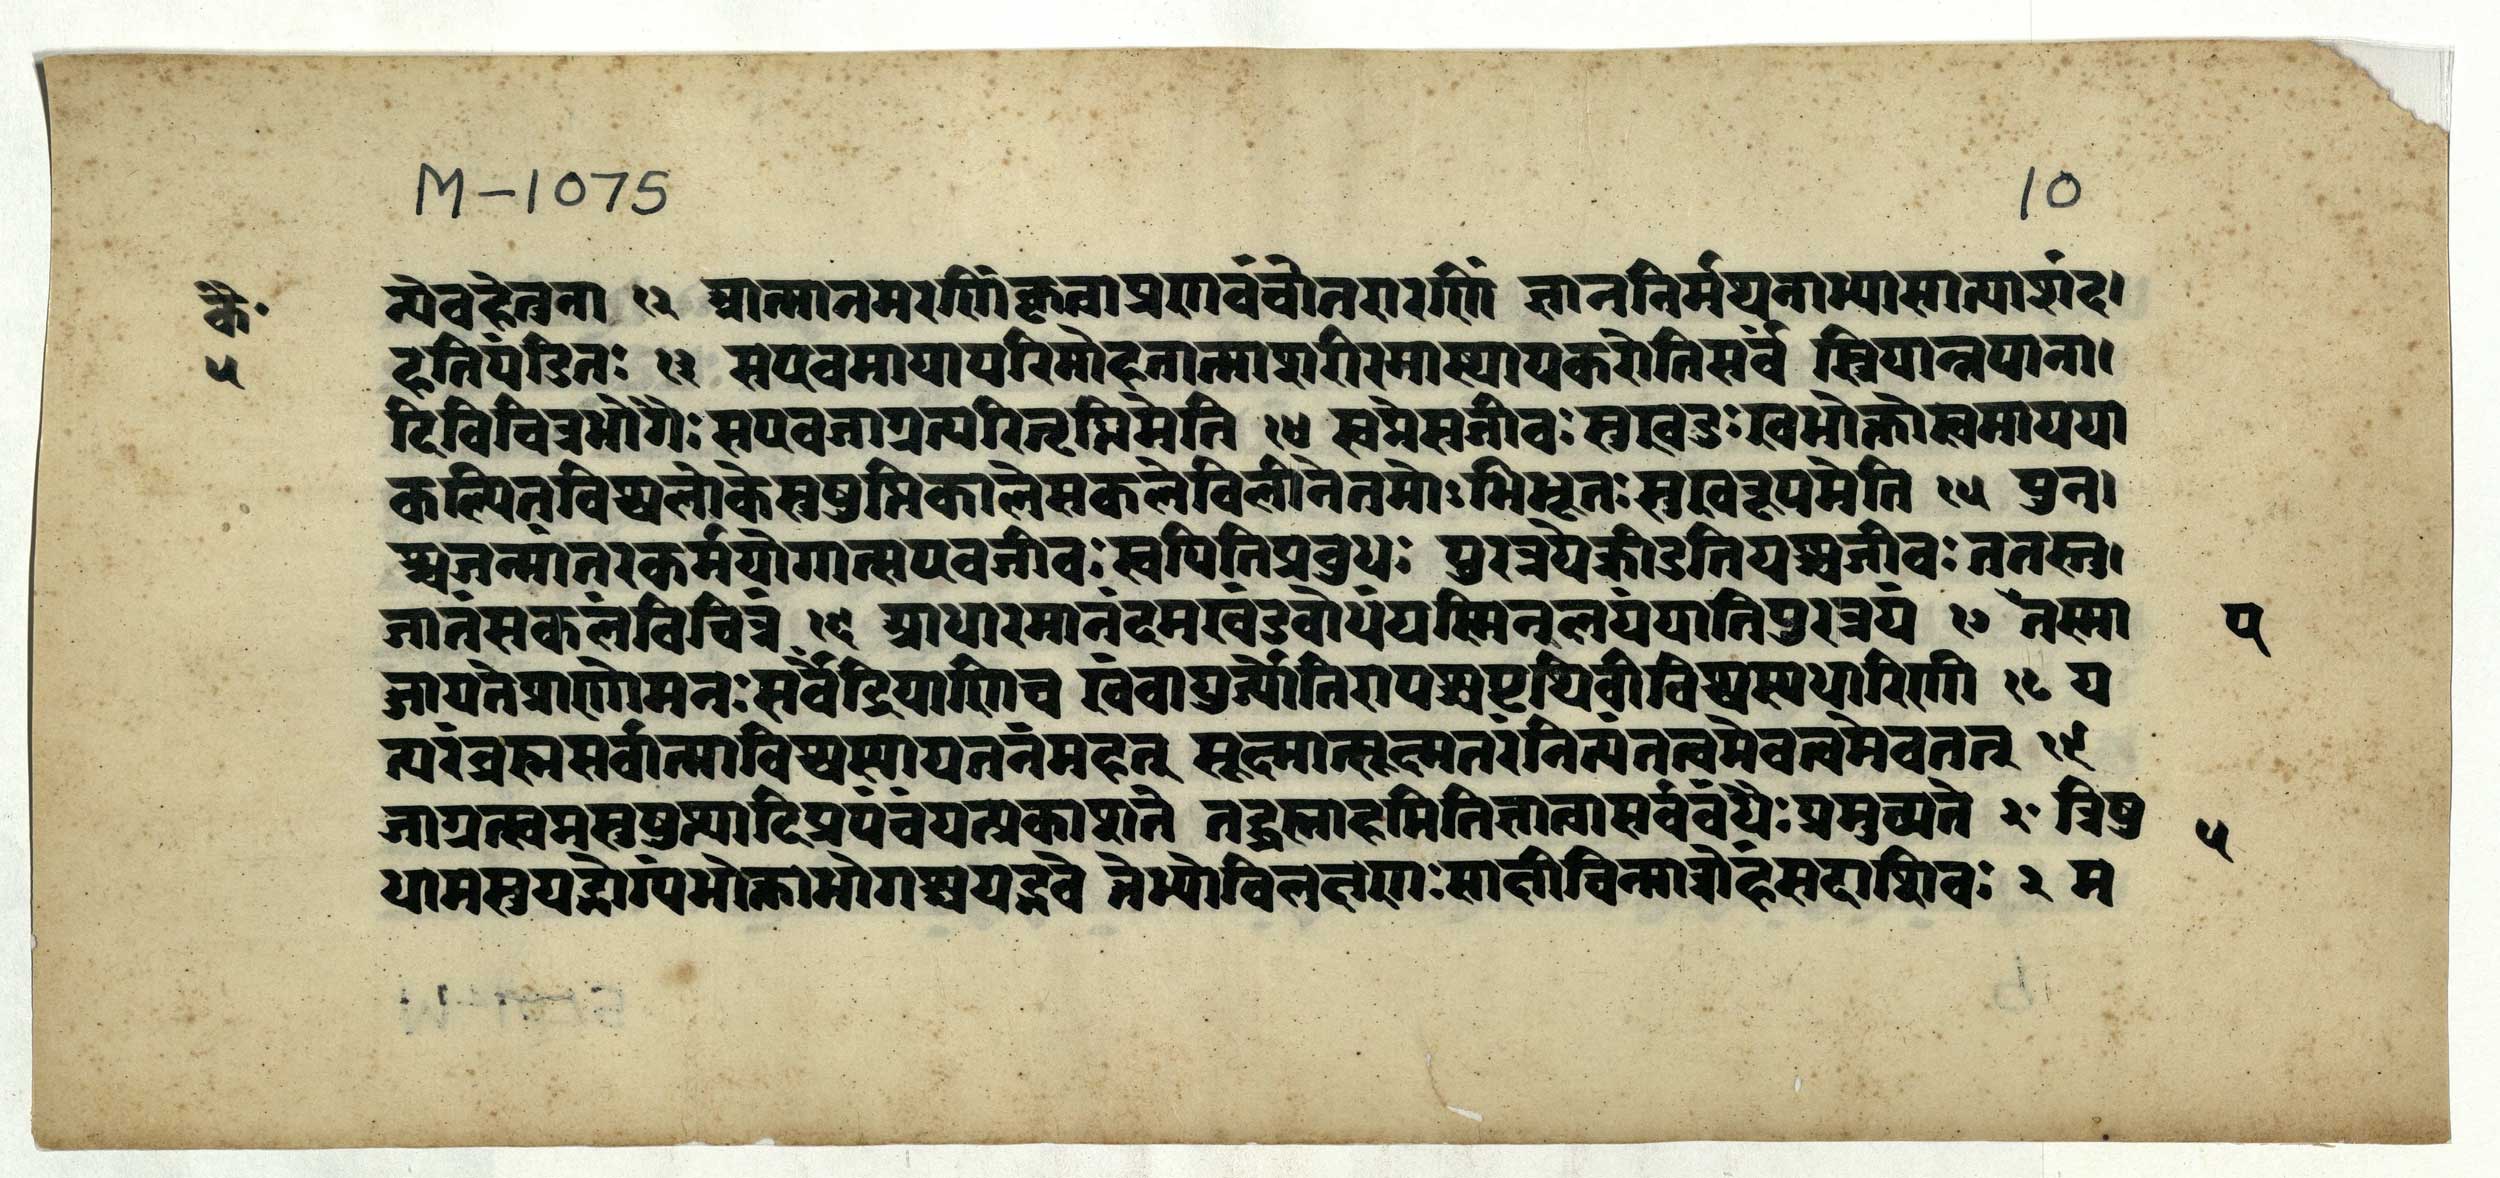 M-1075
10
कै॰
५
त्येवहेतुना १२ आात्मानमरणिंकृत्वाप्रणवंचोतरारणिं ज्ञाननिर्मथनाभ्यासात्पाशंद।
हतिपंडितः १३ सएवमायापरिमोहतात्माशरीरमास्थायकरोतिसर्वं स्त्रियान्नपाना।
दिविचित्रभोगैः सएवजाग्रत्परितृप्तिमेति १४ स्वप्नेसजीवः सुखदुःखभोक्तास्वमायया
कल्पितविश्वलोकेसुषुप्तिकालेसकलेविलीनेतमोऽभिभूतः सुखरूपमेति १५ पुन।
श्चजन्मांतरकर्मयोगात्सएवजीवः स्वपितिप्रबुधः पुरत्रयेक्रीडतियश्चजीवः ततस्तु।
जातंसकलंविचित्रं १६ आधारमानंदमखंडबोधंयस्मिन्लयंयातिपुरत्रयं १७ तस्मा
प
ज्जायतेप्राणोमनः सर्वेंद्रियाणिच खंवायुर्ज्योतिरापश्चपृथिवीविश्वस्यधारिणी १८ य
त्परंब्रह्मसर्वात्माविश्वस्यायतनंमहत् सूक्ष्मात्सूक्ष्मतरंनित्यंतत्वमेवत्वमेवतत् १९
जाग्रत्स्वप्नसुषुप्त्यादिप्रपंचंयत्प्रकाशते तद्ब्रह्माहमितिज्ञात्वासर्वबंधैः प्रमुच्यते २॰ त्रिषु
५
धामसुयद्भोग्यंभोक्ताभोगश्चयद्भवे त्तेभ्योविलक्षणः साक्षीचिन्मात्रोहंसदाशिवः २ म